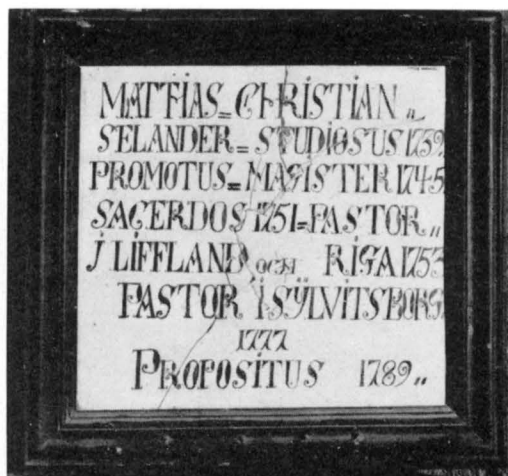 MATHIAS=CHRISTIAN„
SELANDER=STUDIOSUS 1739.
PROMOTUS=MAGISTER 1745
SACERDOS 1751=PASTOR„
I LIFFLAND OCH RIGA 1753
PASTOR I SYLVITSBORG
1777
PROPOSITUS 1789„